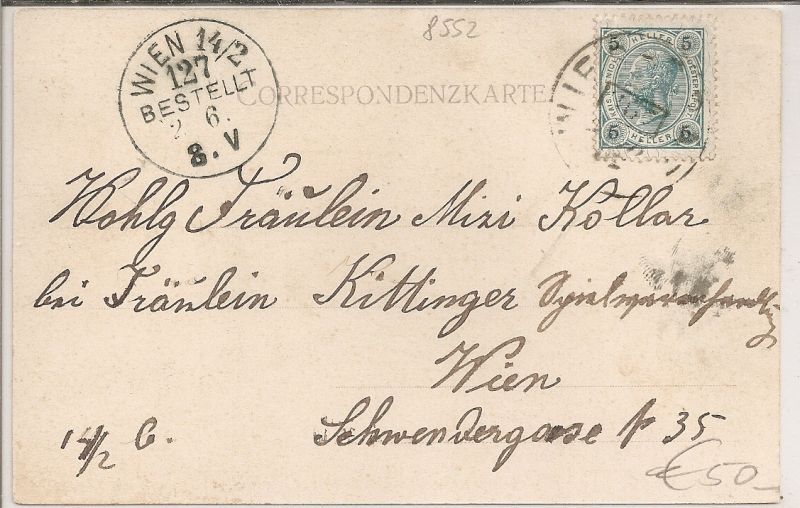 8552
WIEN 14/2
127
BESTELLT
2. 6.
8. V
CORRESPONDENZKARTE
5 HELLER 5
5 HELLER 5
WIE
Wohlg Fräulein Mizi Kollar
bei Fräulein Kittinger Spielwarenhandlung
Wien
14/2 6. Schwendergasse 35
€50-